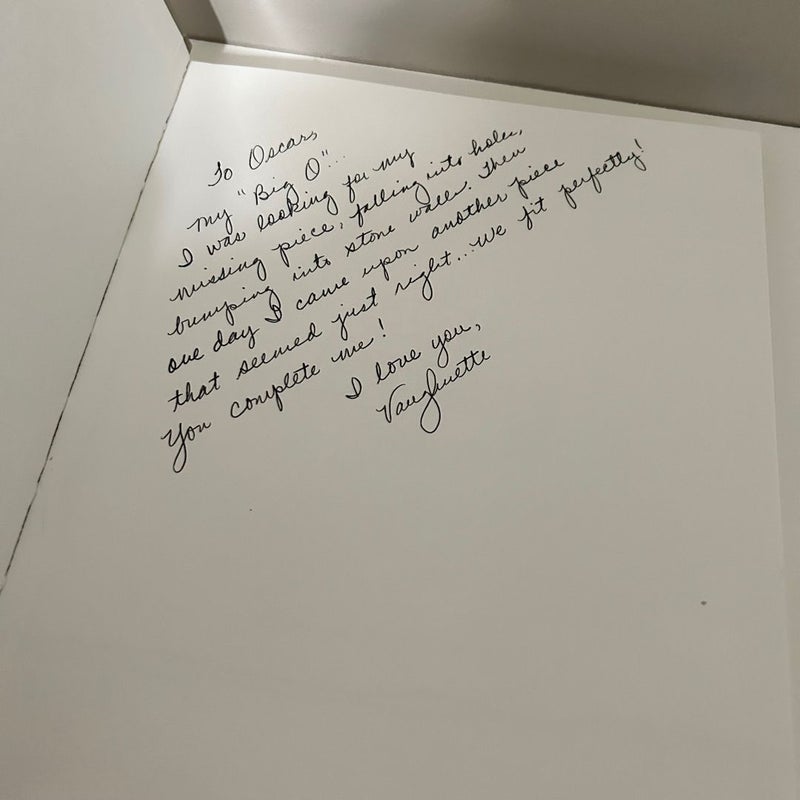 To Oscar,
my "Big O"...
I was looking for my
missing piece, falling into holes,
bumping into stone walls. Then
one day I came upon another piece
that seemed just right... We fit perfectly!
You complete me!
I love you,
Vaughnette